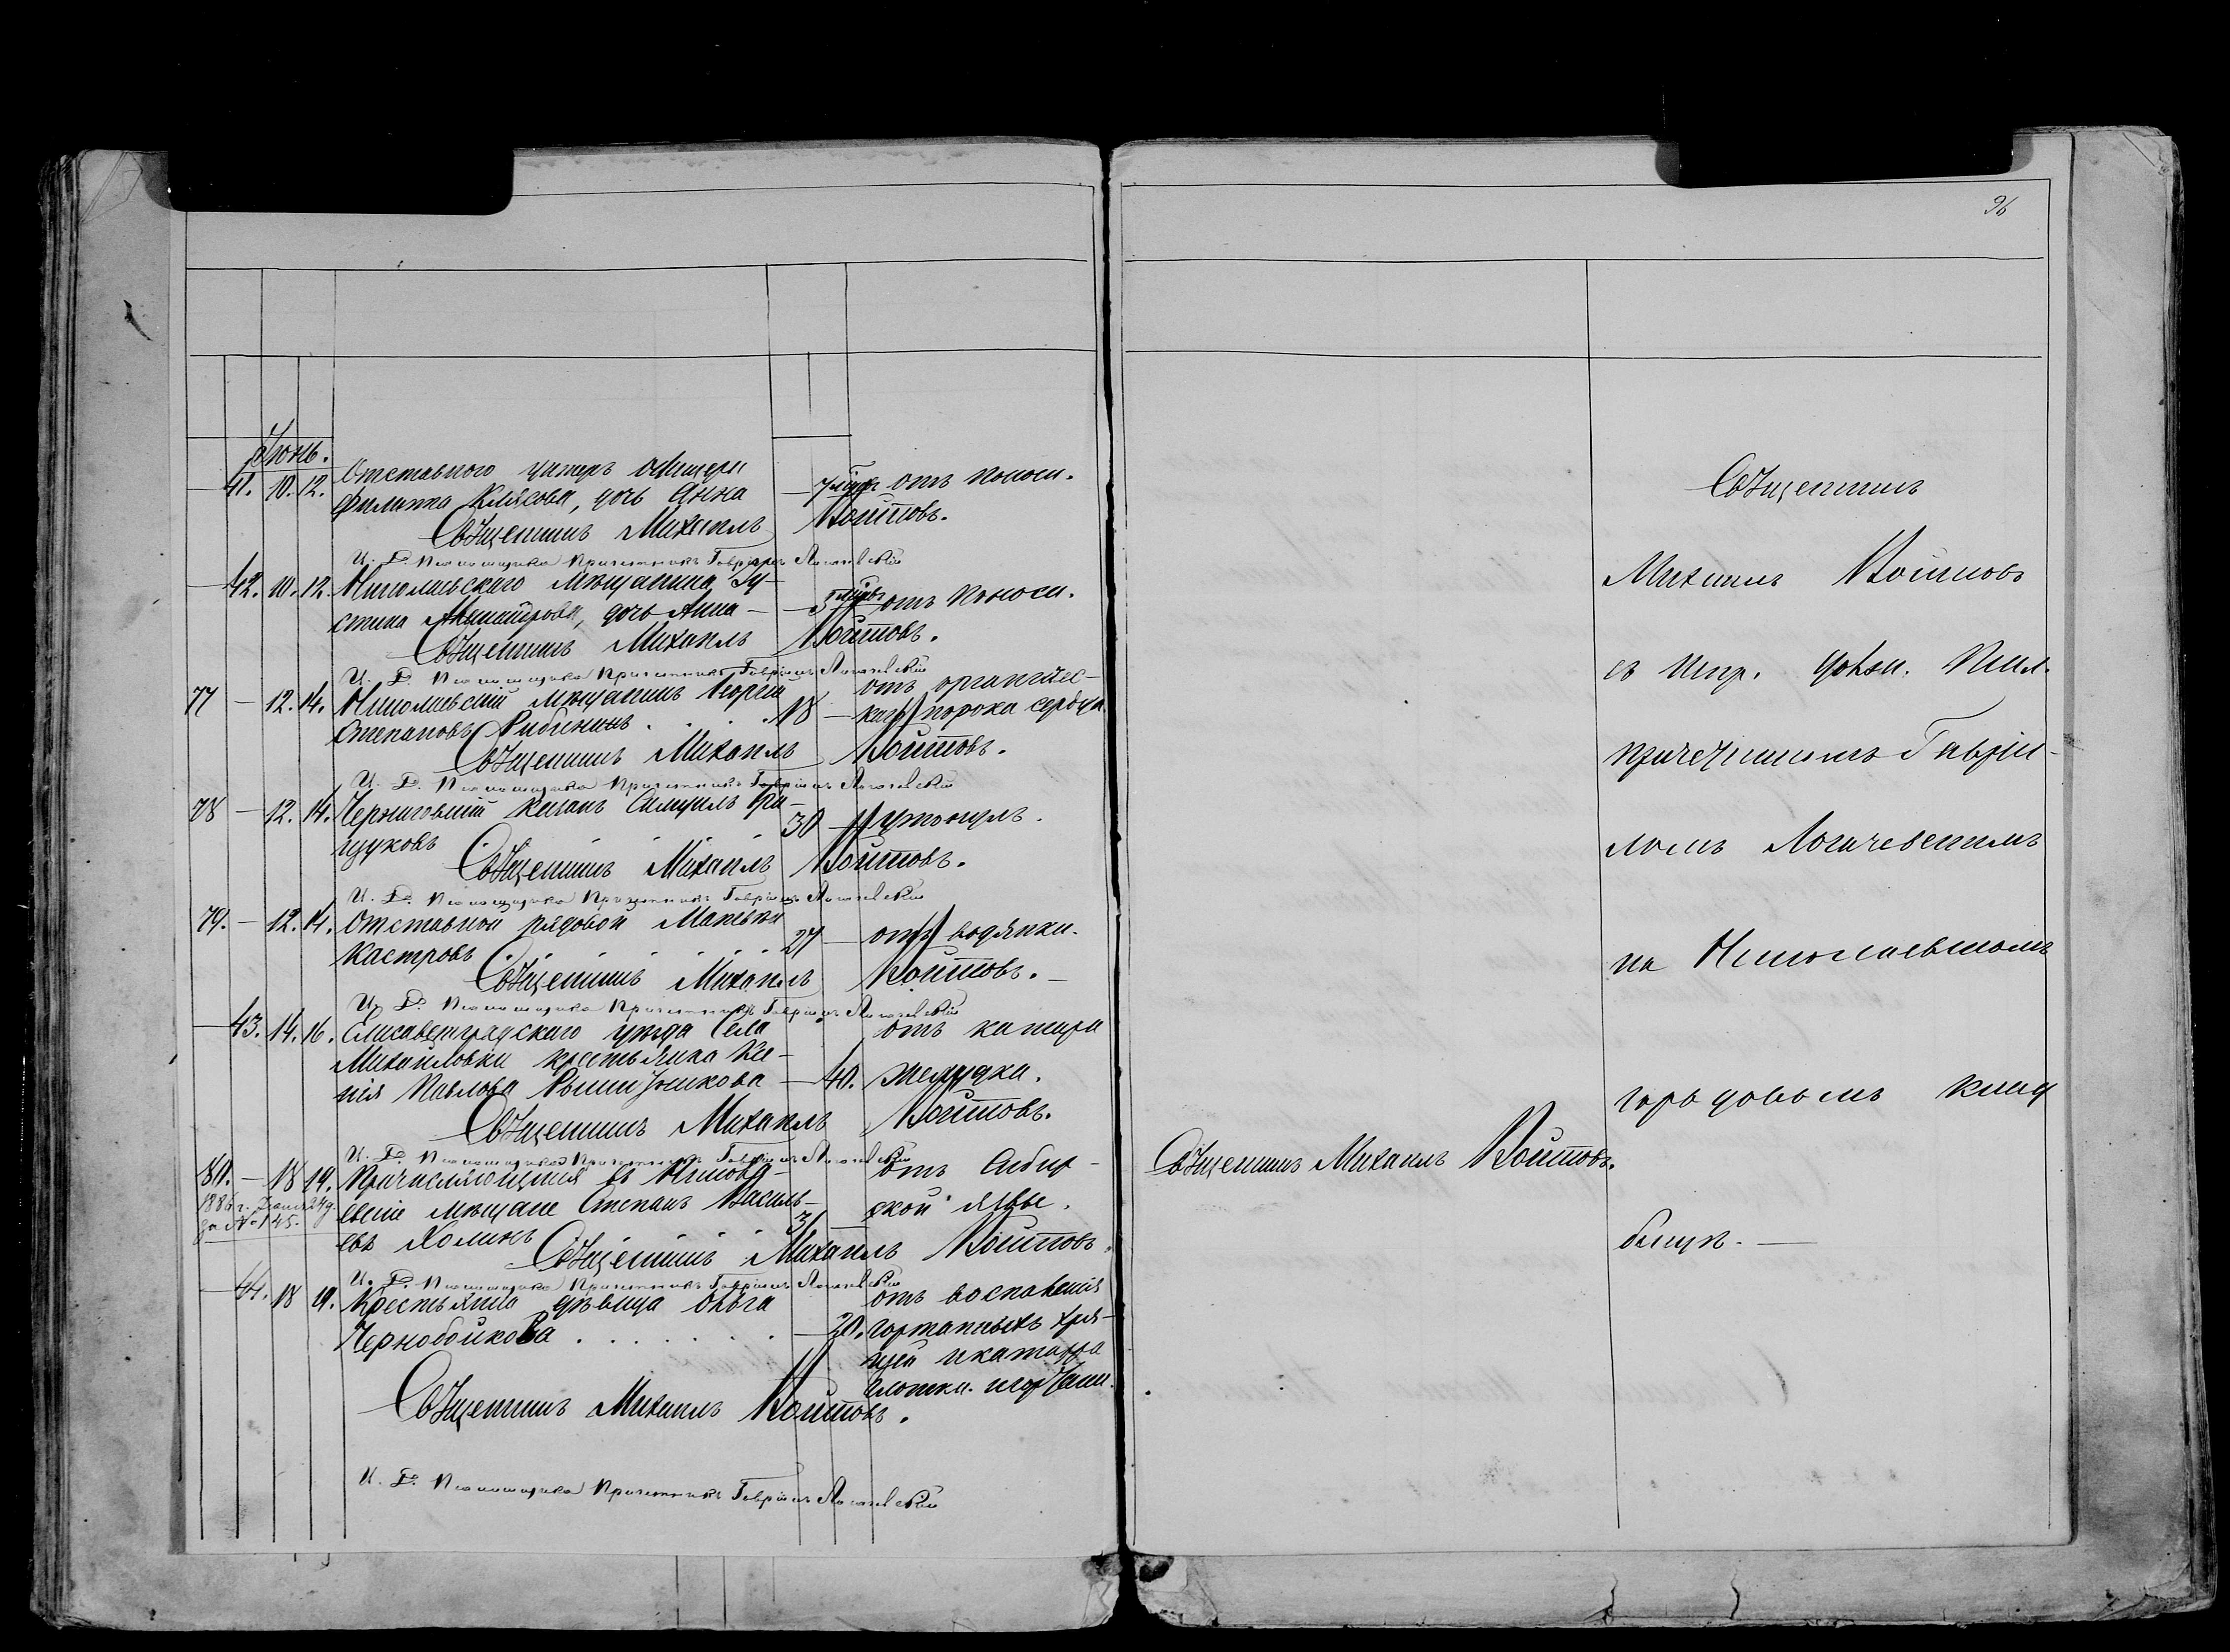 96
Іюнь.
41. 10. 12. Отставного унтеръ офицера
Филиппа Клякова, дочь Анна — 7 отъ поноса.
Священникъ Михаилъ Войтовъ.
И. Д. Псаломщика Причетникъ Гавріилъ Логачевскій
42. 10. 12. Николаевскаго мѣщанина Іу-
стина дочь Анна — 5 отъ поноса.
Священникъ Михаилъ Войтовъ.
И. Д. Псаломщика Причетникъ Гавріилъ Логачевскій
77 — 12. 14. Николаевскій мѣщанинъ Георгій
Степановъ Рибининъ . . . . 18 — отъ органичес-
каго порока сердца
Священникъ Михаилъ Войтовъ.
И. Д. Псаломщика Причетникъ Гавріилъ Логачевскій
78 — 12. 14. Черниговскій казакъ Самуилъ Гри-
цуковъ 30 — утонулъ.
Священникъ Михаилъ Войтовъ.
И. Д. Псаломщика Причетникъ Гавріилъ Логачевскій
79. — 12. 14. Отставной рядовой Матвѣй
Кастровъ . . . . 27 — отъ водянки.
Священникъ Михаилъ Войтовъ. —
И. Д. Псаломщика Причетникъ Гавріилъ Логачевскій
— 43. 14. 16. Елисаветградскаго уѣзда села
Михайловки крестьянка Ксе-
нія Павлова — 40. отъ катара
желудка.
Священникъ Михаилъ Войтовъ.
И. Д. Псаломщика Причетникъ Гавріилъ Логачевскій
80. — 18 19. Причисляющійся въ Николa-
1886 г.
за № 145.
евскіе мѣщане Степанъ Василь-
евъ Холинъ 31 отъ Сибир-
ской язвы.
Священникъ Михаилъ Войтовъ.
И. Д. Псаломщика Причетникъ Гавріилъ Логачевскій
— 44. 18 19. Крестьянка дѣвица Ольга
Чернобойкова . . . . . . . — 20. отъ воспаленія
гортанныхъ хря-
щей и катарра
глотки.
Священникъ Михаилъ Войтовъ.
И. Д. Псаломщика Причетникъ Гавріилъ Логачевскій
Священникъ Михаилъ Войтовъ.
Священникъ
Михаилъ Войтовъ
съ испр. должн. Псал.
причетникомъ Гаврі-
ломъ Логачевскимъ
на Николаевскомъ
городовомъ клад
бищѣ. —